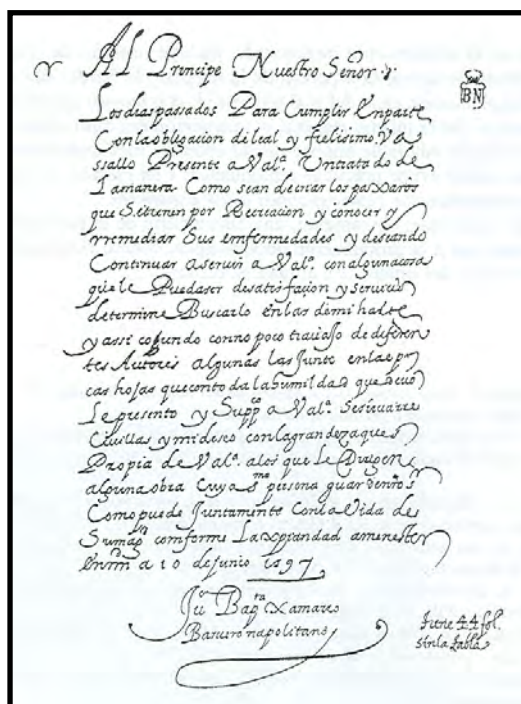 Al Principe Nuestro Señor
BN
Los dias passados Para Cumplir En parte
Con la obligacion de leal y fielisimo Va
ssallo Presente a Val^a. Un tratado de
La manera Como se an de criar los paxaros
que Se tienen por Recreacion y conocer y
rremediar Sus emfermedades y deseando
Continuar a seruir a Val^a. con alguna cosa
que le Pueda ser de satisfacion y seruicio
determine Buscarlo en las de mi
y assi con no poco trauajo de diferen
tes Autores algunas las Junte en las po
cas hojas que con toda la humildad que deuo
Le presento y Supp^co a Val^a. Se sirua
y mi deseo con la grandeza que es
Propia de Val^a. a los que le
alguna obra Cuya persona guarde nro S^r
Como puede Juntamente Con la Vida de
Su mag^d comforme La xpiandad a menester
En m^d a 10 de junio 1597
Ju^o Bap^ta Xamarro
Baruero napolitano
tiene 44 fol.
sin la tabla